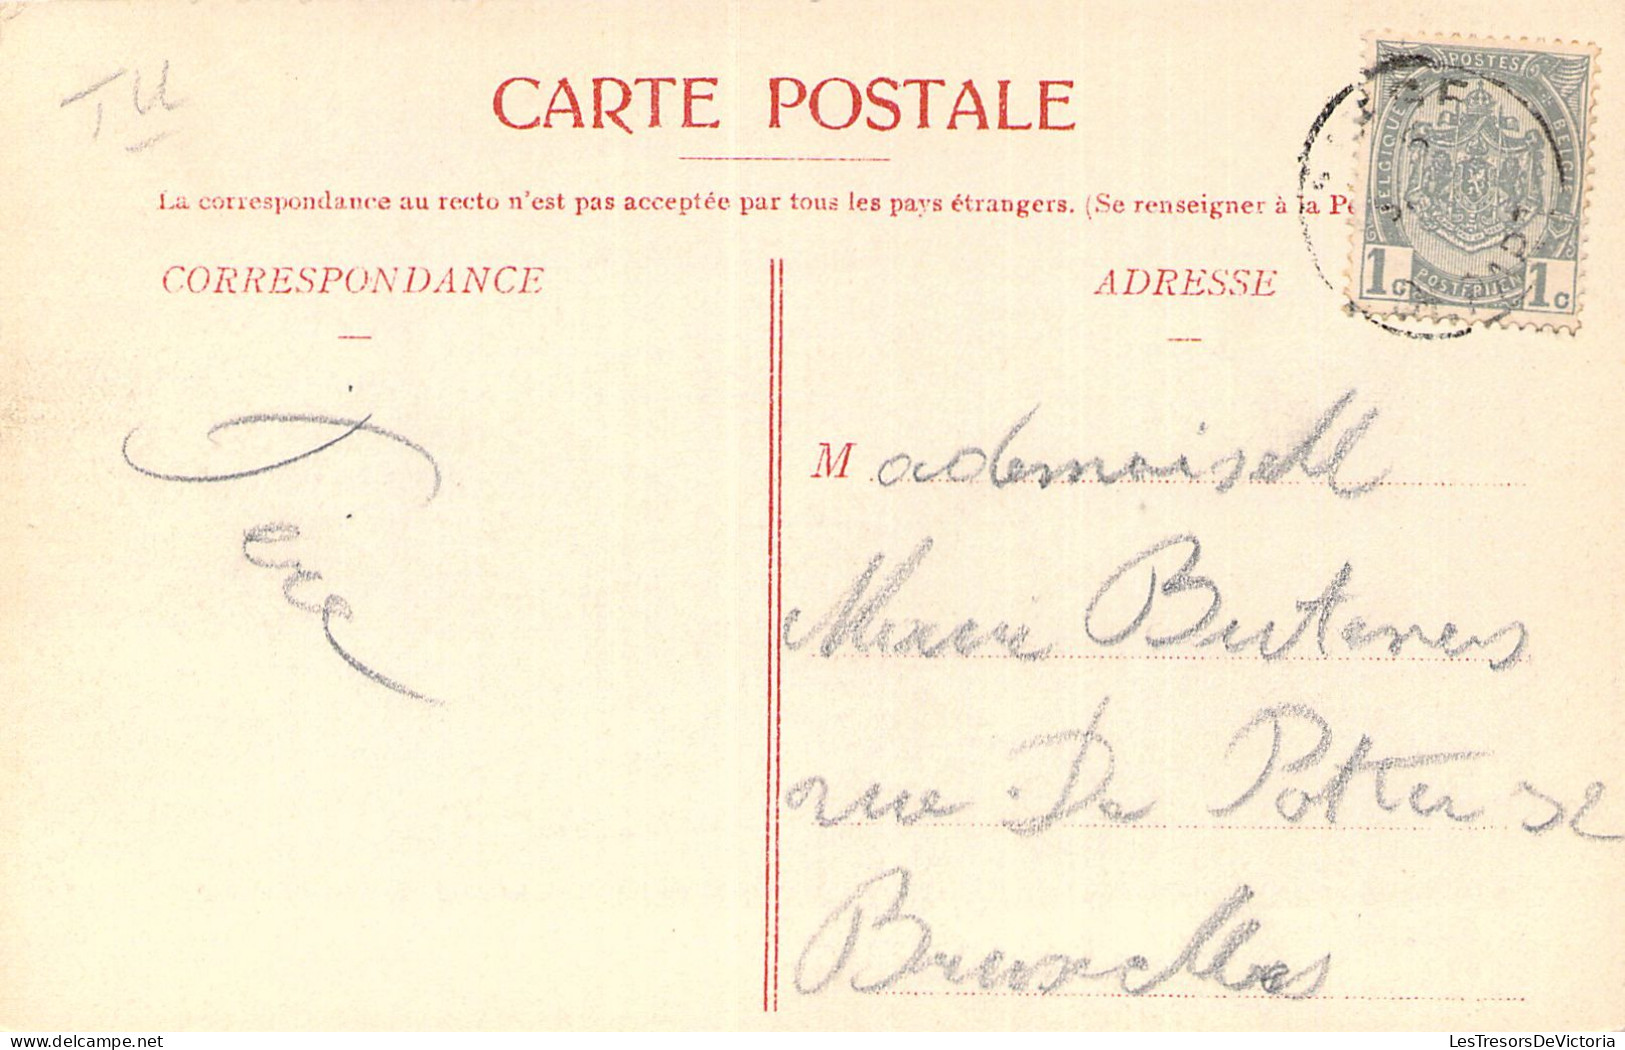 TU
CARTE POSTALE
La correspondance au recto n'est pas acceptée par tous les pays étrangers. (Se renseigner à la
CORRESPONDANCE
ADRESSE
POSTES
BELGIQUE
BELGIE
POSTERIJEN
1c 1c
Mademoiselle
Marie
rue De Potter 32
Bruxelles
delcampe.net
LesTresorsDeVictoria